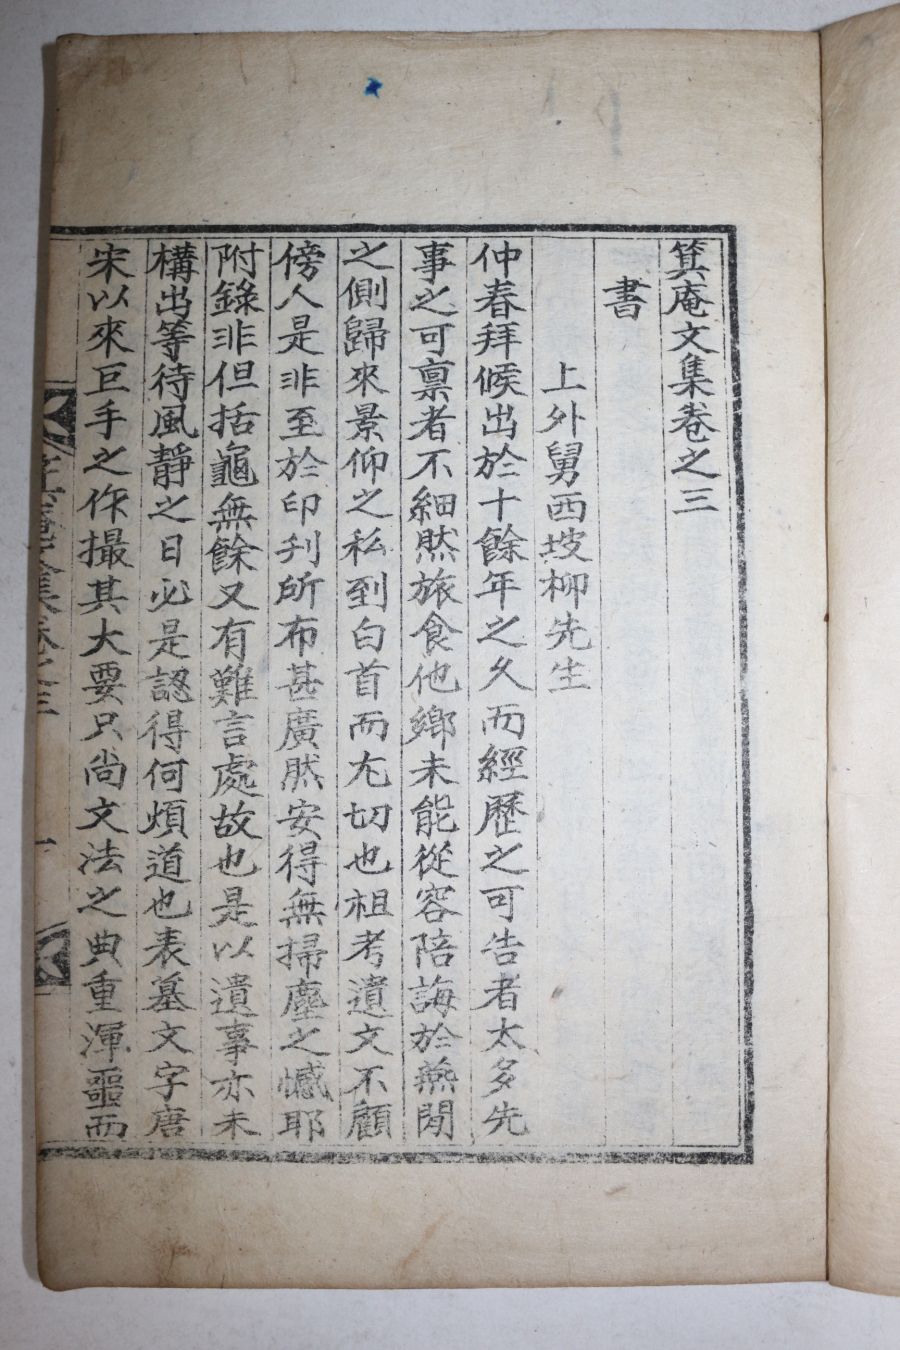 箕庵文集卷之三
書
上外舅西坡柳先生
仲春拜候出於十餘年之久而經歷之可告者太多先
事之可稟者不細然旅食他鄉未能從容陪誨於燕閒
之側歸來景仰之私到白首而尢切也祖考遺文不顧
傍人是非至於印刋所布甚廣然安得無掃塵之憾耶
附錄非但括龜無餘又有難言處故也是以遺事亦未
構出等待風靜之日必是認得何煩道也表墓文字唐
宋以來巨手之作撮其大要只尙文法之典重渾噩而
箕庵文集卷之三
一